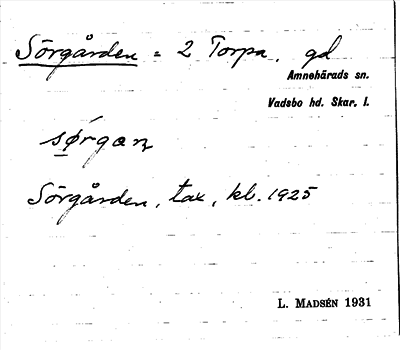 Sörgården = 2 Torpa, gd
Amnehärads sn.
Vadsbo hd. Skar. l.
sǿrgan
Sörgården, tax, kl. 1925
L. MADSÉN 1931